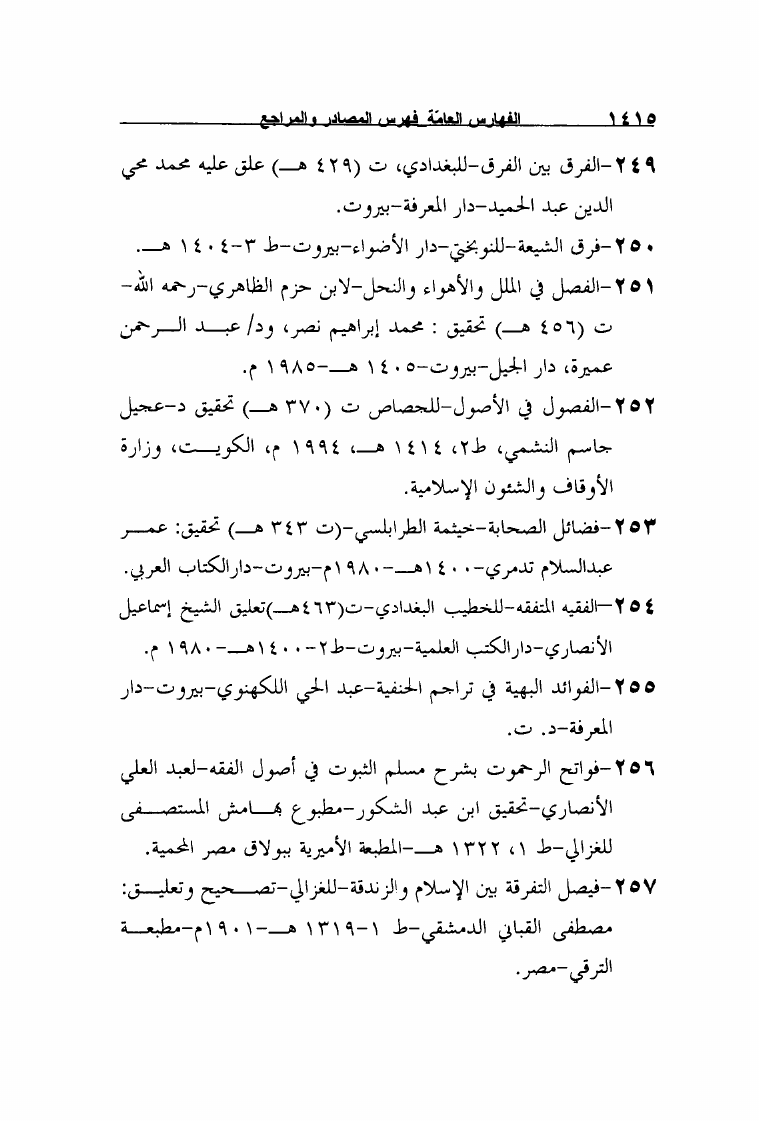 ١٤١٥ الفهارس العامّة فهرس المصادر والمراجع
٢٤٩-الفرق بين الفرق-للبغدادي، ت (٤٢٩ هـ) علق عليه محمد محي
الدين عبد الحميد-دار المعرفة-بيروت.
٢٥٠-فرق الشيعة-للنوبختي-دار الأضواء-بيروت-ط ٣-١٤٠٤ هـ.
٢٥١-الفصل في الملل والأهواء والنحل-لابن حزم الظاهري-رحمه الله-
ت (٤٥٦ هـ) تحقيق : محمد إبراهيم نصر، ود/ عبد الرحمن
عميرة، دار الجيل-بيروت-١٤٠٥ هـ-١٩٨٥ م.
٢٥٢-الفصول في الأصول-للحصاص ت (٣٧٠ هـ) تحقيق د-عجيل
جاسم النشمي، ط٢، ١٤١٤ هـ، ١٩٩٤ م، الكويت، وزارة
الأوقاف والشئون الإسلامية.
٢٥٣-فضائل الصحابة-خيثمة الطرابلسي-(ت ٣٤٣ هـ) تحقيق: عمر
عبدالسلام تدمري-١٤٠٠هـ-١٩٨٠م-بيروت-دارالكتاب العربي.
٢٥٤-الفقيه المتفقه-للخطيب البغدادي-ت(٤٦٣هـ)تعليق الشيخ إسماعيل
الأنصاري-دارالكتب العلمية-بيروت-ط٢-١٤٠٠هـ-١٩٨٠ م.
٢٥٥-الفوائد البهية في تراجم الحنفية-عبد الحي اللكهنوي-بيروت-دار
المعرفة-د. ت.
٢٥٦-فواتح الرحموت بشرح مسلم الثبوت في أصول الفقه-لعبد العلي
الأنصاري-تحقيق ابن عبد الشكور-مطبوع بهامش المستصفى
للغزالي-ط ١، ١٣٢٢ هـ-المطبعة الأميرية ببولاق مصر المحمية.
٢٥٧-فيصل التفرقة بين الإسلام والزندقة-للغزالي-تصحيح وتعليق:
مصطفى القباني الدمشقي-ط ١-١٣١٩ هـ-١٩٠١م-مطبعة
الترقي-مصر.